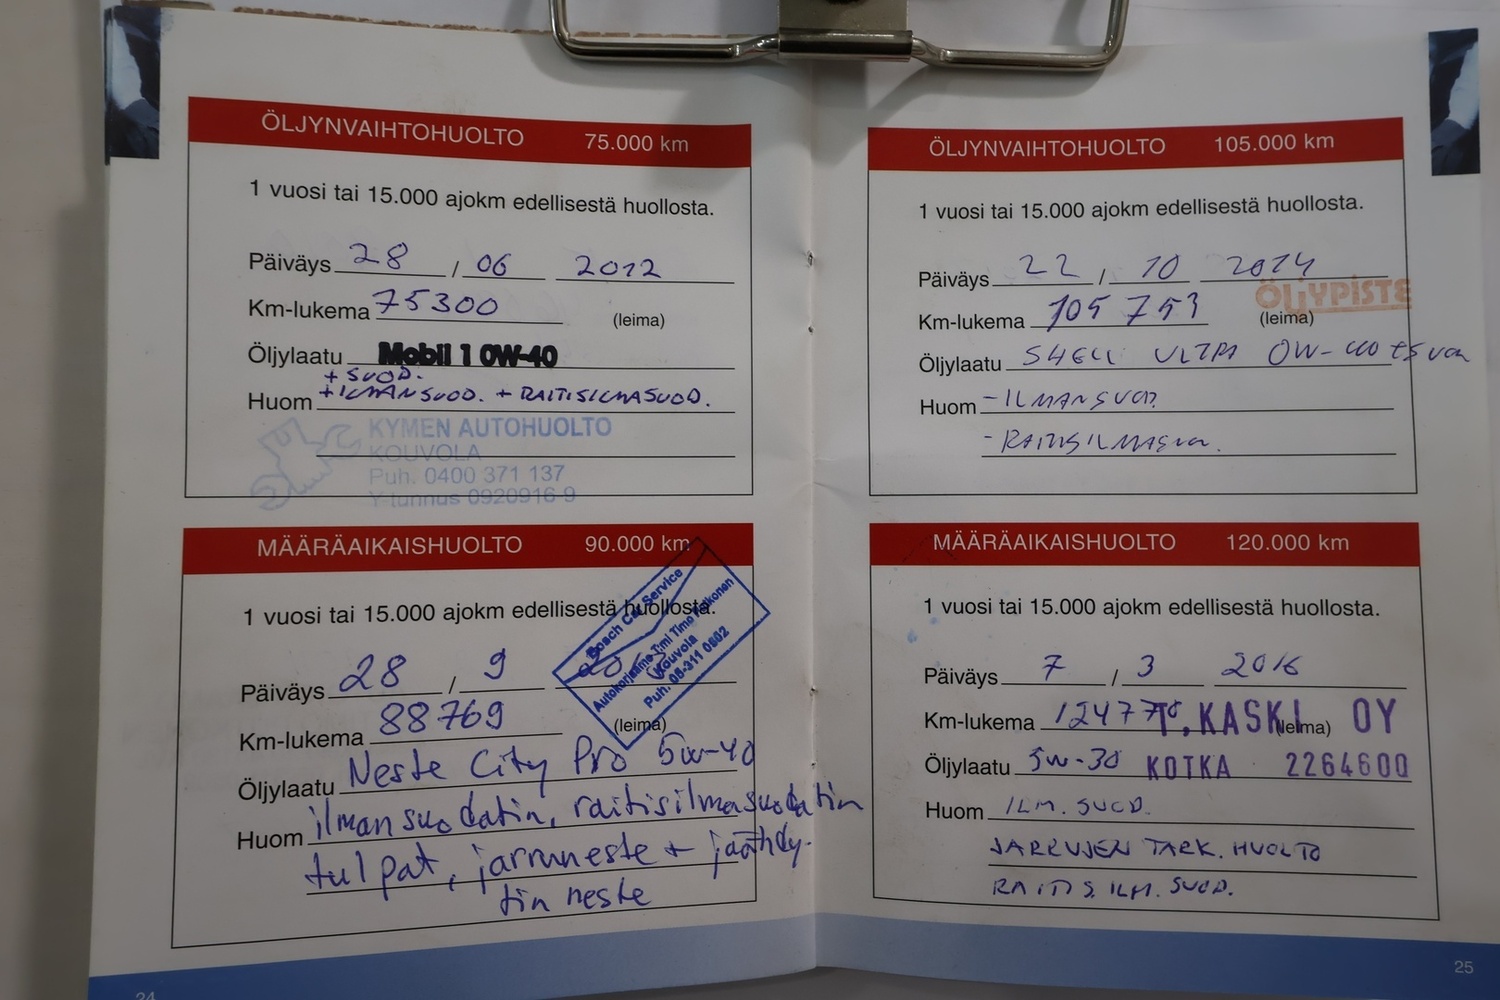 ÖLJYNVAIHTOHUOLTO 75.000 km
1 vuosi tai 15.000 ajokm edellisestä huollosta.
Päiväys 28 / 06 2012
Km-lukema 75300 (leima)
Öljylaatu Mobil 1 0W-40
+ SUOD.
Huom + ILMANSUOD. + RAITISILMASUOD.
KYMEN AUTOHUOLTO
KOUVOLA
Puh. 0400 371 137
Y-tunnus 0920916-9
MÄÄRÄAIKAISHUOLTO 90.000 km
1 vuosi tai 15.000 ajokm edellisestä huollosta.
Bosch Car Service
Autokorjaamo Tmi Timo
Kouvola
Puh. 05-311 0502
Päiväys 28 / 9 2013
Km-lukema 88769 (leima)
Öljylaatu Neste City Pro 5w-40
Huom ilmansuodatin, raitisilmasuodatin
tulpat, jarruneste + jäähdy-
tin neste
24
ÖLJYNVAIHTOHUOLTO 105.000 km
1 vuosi tai 15.000 ajokm edellisestä huollosta.
Päiväys 22 / 10 2014
ÖLJYPISTE
Km-lukema 105 753 (leima)
Öljylaatu SHELL ULTRA 0W-40
Huom - ILMANSUOD.
- RAITISILMASUO.
MÄÄRÄAIKAISHUOLTO 120.000 km
1 vuosi tai 15.000 ajokm edellisestä huollosta.
Päiväys 7 / 3 2016
Km-lukema T. KASKI OY (leima)
Öljylaatu 5w-30 KOTKA 2264600
Huom ILM. SUOD.
JARRUJEN TARK. HUOLTO
RAITIS ILM. SUOD.
25